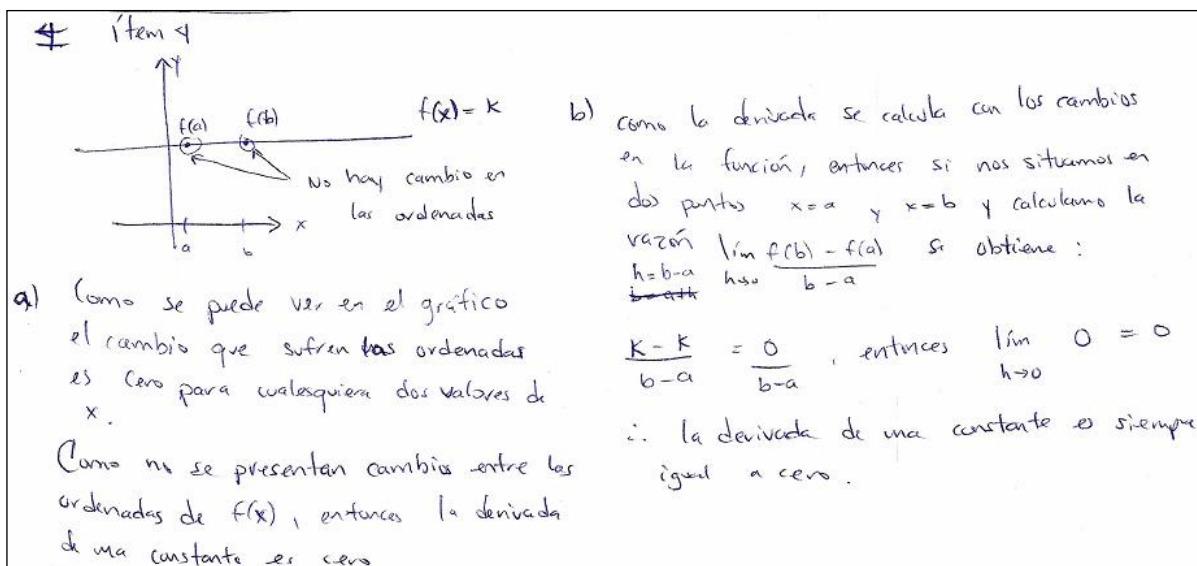 4 ítem 4
y
f(a) f(b) f(x) = k
No hay cambio en
las ordenadas
x
a b
a) Como se puede ver en el gráfico
el cambio que sufren las ordenadas
es cero para cualesquiera dos valores de
x.
Como no se presentan cambios entre las
ordenadas de f(x), entonces la derivada
de una constante es cero
b) como la derivada se calcula con los cambios
en la función, entonces si nos situamos en
dos puntos x=a y x=b y calculamo la
razón lím h→0 f(b) - f(a) / b - a se obtiene :
h = b-a
b = a+h
k - k / b - a = 0 / b-a , entonces lím h→0 0 = 0
∴ la derivada de una constante es siempre
igual a cero.